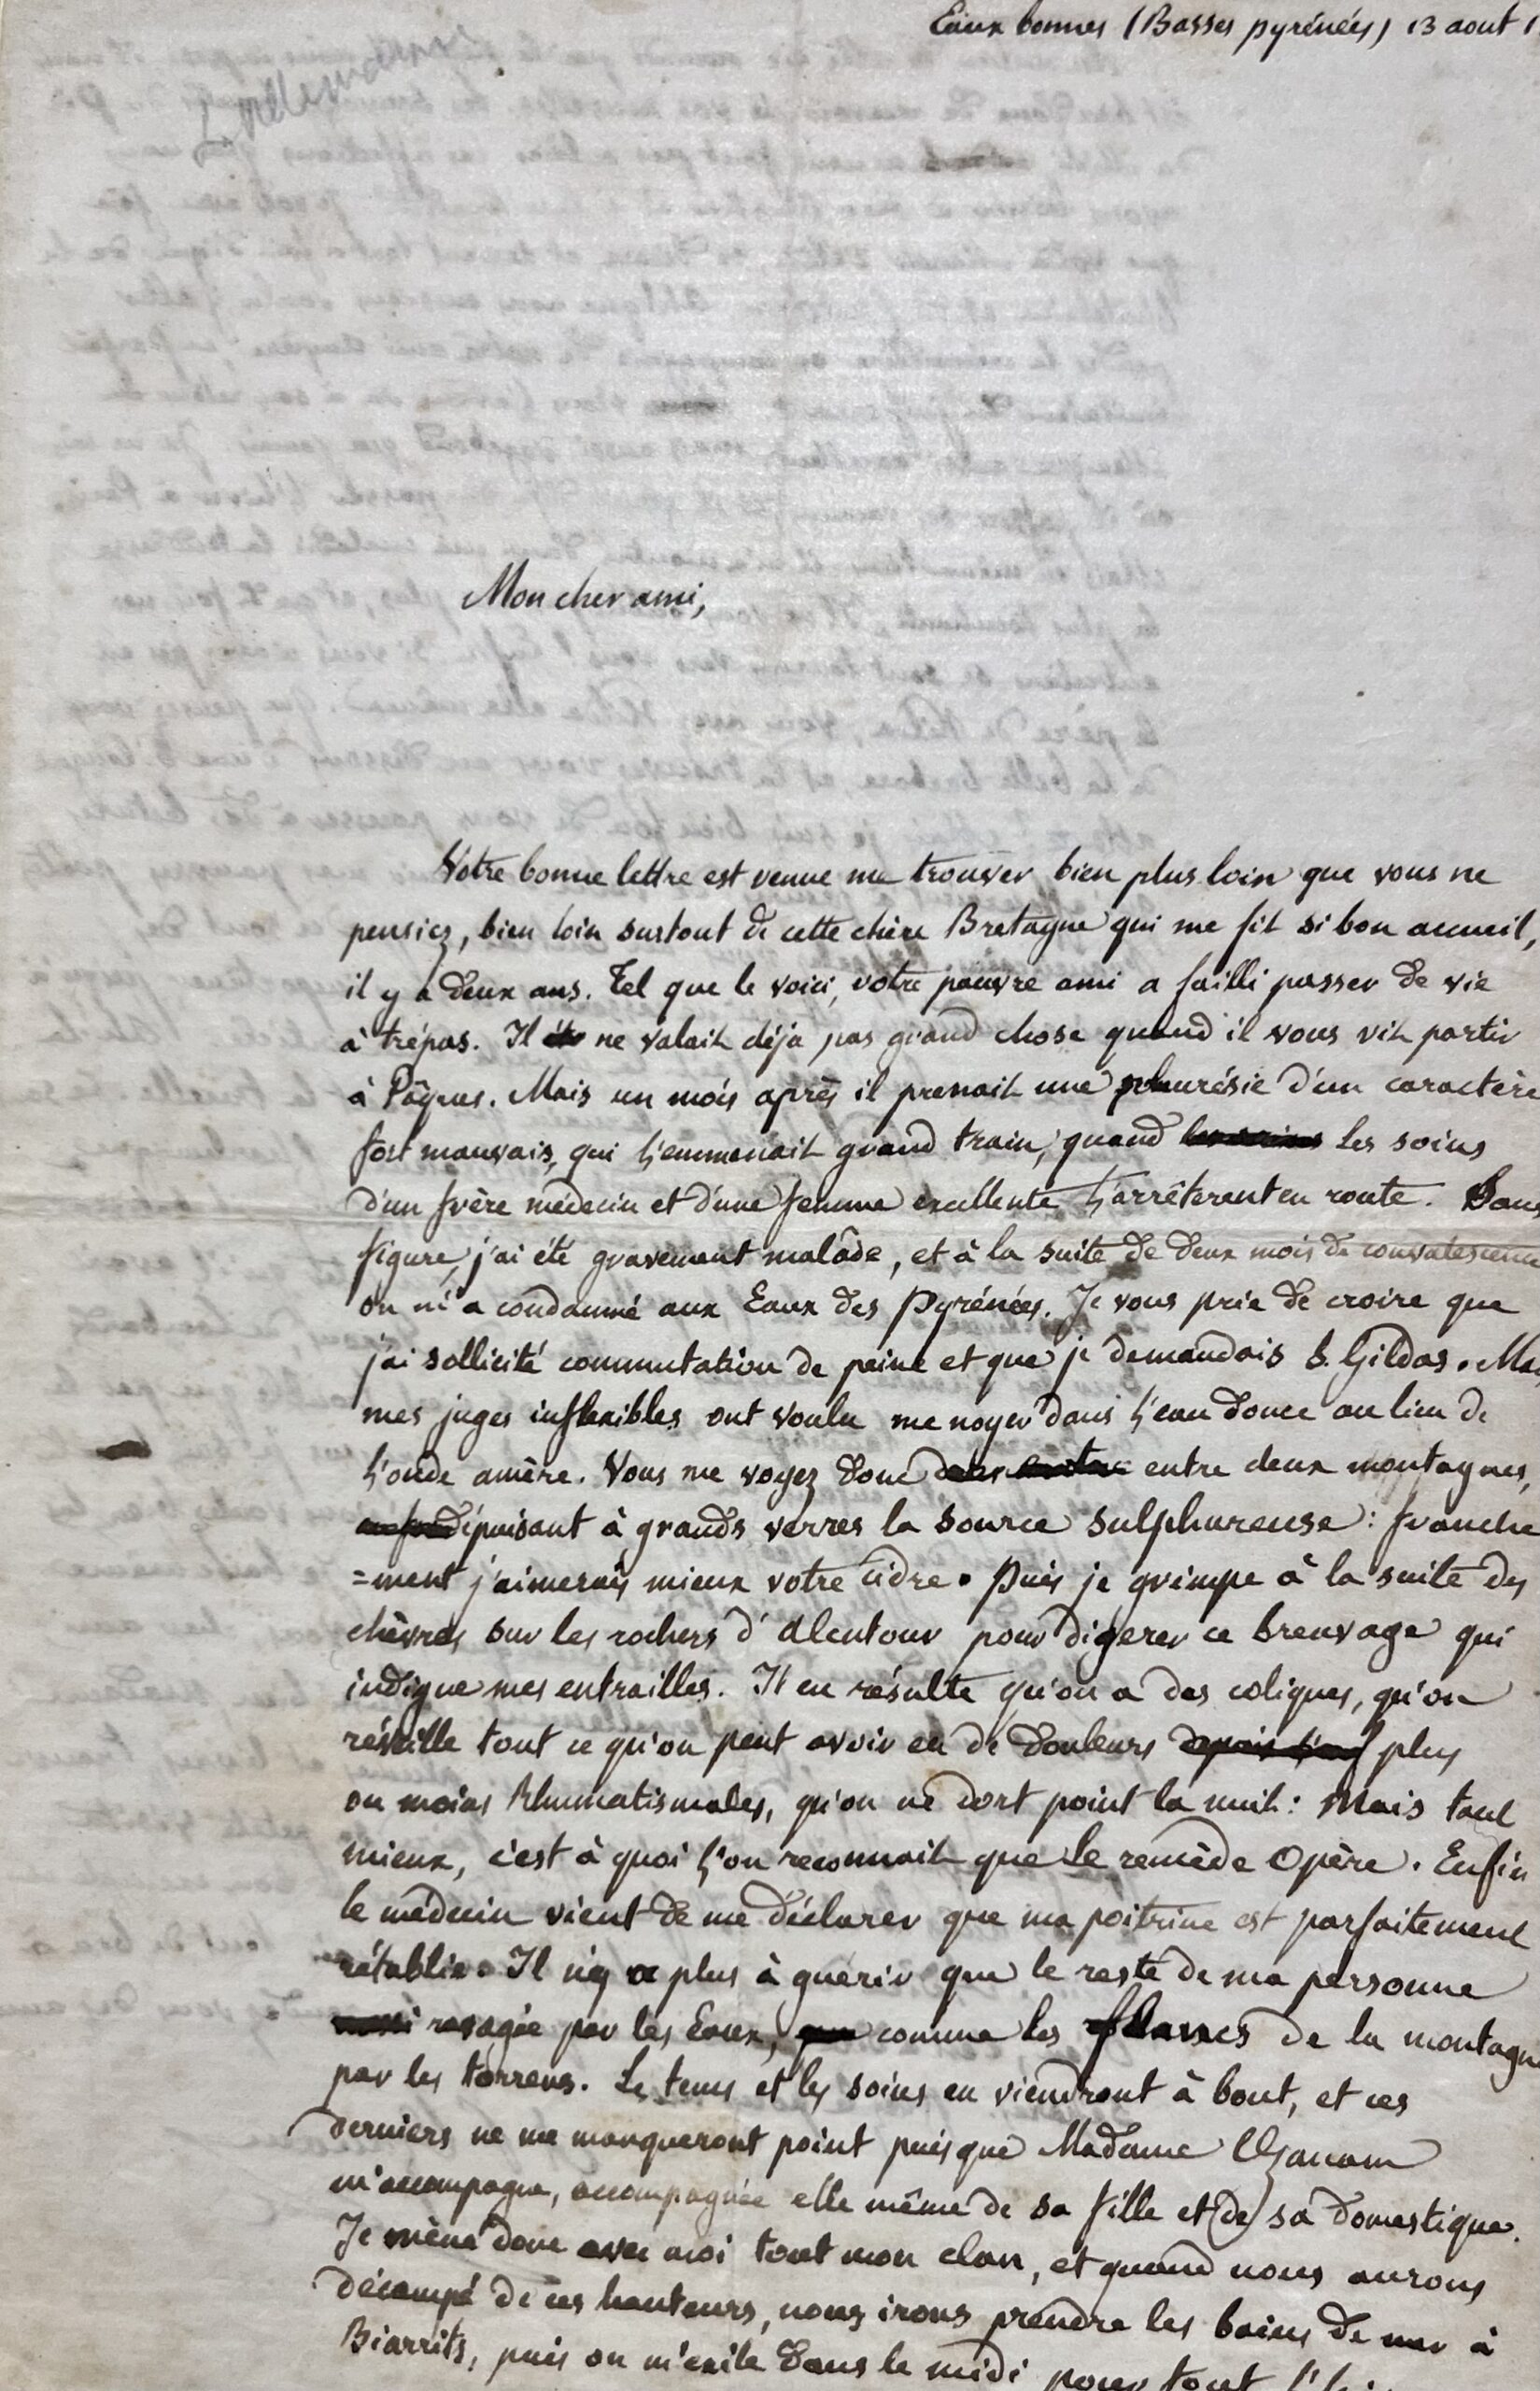 Eaux bonnes (Basses pyrénées) 13 aout 1
Mon cher ami,
Votre bonne lettre est venue me trouver bien plus loin que vous ne
pensiez, bien loin surtout de cette chère Bretagne qui me fit si bon accueil,
il y a deux ans. Tel que le voici, votre pauvre ami a failli passer de vie
à trépas. Il ne valait déja pas grand chose quand il vous vit partir
à Pâques. Mais un mois après il prenait une pleurésie d'un caractère
fort mauvais, qui l'emmenait grand train, quand les soins
d'un frère médecin et d'une femme excellente l'arrêterent en route. Sans
figure, j'ai été gravement malade, et à la suite de deux mois de convalescence
on m'a condamné aux Eaux des Pyrénées. Je vous prie de croire que
j'ai sollicité commutation de peine et que je demandais S. Gildas. Ma
mes juges inflexibles ont voulu me noyer dans l'eau douce au lieu de
l'onde amère. Vous me voyez donc entre deux montagnes,
épuisant à grands verres la source sulphureuse : franche
=ment j'aimerais mieux votre cidre. Puis je grimpe à la suite des
chèvres sur les rochers d'alentour pour digerer ce breuvage qui
indigne mes entrailles. Il en résulte qu'on a des coliques, qu'on
réveille tout ce qu'on peut avoir eu de douleurs plus
ou moins Rhumatismales, qu'on ne dort point la nuit : Mais tant
mieux, c'est à quoi l'on reconnait que le remède opère. Enfin
le médecin vient de me déclarer que ma poitrine est parfaitement
rétablie. Il n'y a plus à guérir que le reste de ma personne
ravagée par les Eaux, comme les flancs de la montagn
par les torrens. Le tems et les soins en viendront à bout, et ces
derniers ne me manqueront point puisque Madame Ozanam
m'accompagne, accompagnée elle même de sa fille et (de) sa domestique.
Je mène donc avec moi tout mon clan, et quand nous aurons
décampé de ces hauteurs, nous irons prendre les bains de mer à
Biarrits, puis on m'exile dans le midi pour tout